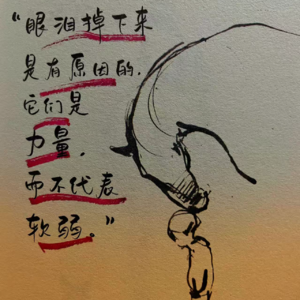 “眼泪掉下来
是有原因的.
它们是
力量,
而不代表
软弱。”